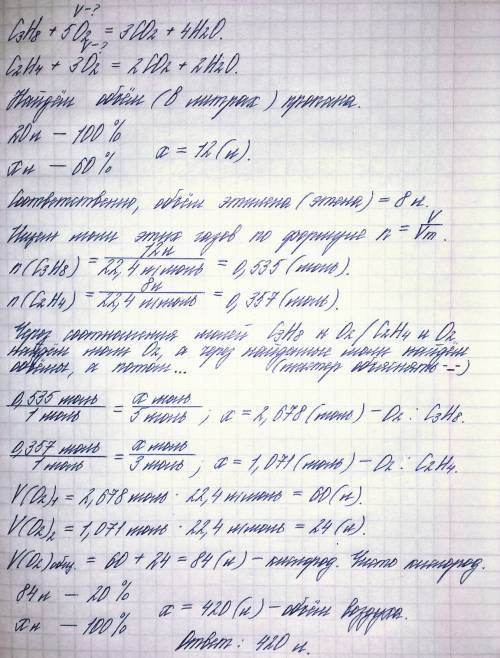 V-?
C3H8 + 5O2 = 3CO2 + 4H2O.
V-?
C2H4 + 3O2 = 2CO2 + 2H2O.
Найдём объём (в литрах) пропана.
20л — 100%
xл — 60% x = 12(л).
Соответственно, объём этилена (этена) = 8л.
Ищем моли этих газов по формуле n = V/Vm.
n(C3H8) = 12л/22,4 л/моль = 0,535 (моль).
n(C2H4) = 8л/22,4 л/моль = 0,357 (моль).
Через соотношения молей C3H8 и O2/C2H4 и O2
найдём моли O2, а через найденные моли найдём
объёмы, а потом... (мастер объяснять -_-)
0,535 моль/1 моль = x моль/5 моль ; x = 2,678 (моль) — O2 : C3H8.
0,357 моль/1 моль = x моль/3 моль ; x = 1,071 (моль) — O2 : C2H4.
V(O2)1 = 2,678 моль · 22,4 л/моль = 60 (л).
V(O2)2 = 1,071 моль · 22,4 л/моль = 24 (л).
V(O2)общ. = 60 + 24 = 84 (л) — кислород. Чисто кислород.
84л — 20%
xл — 100% x = 420 (л) — объём воздуха.
Ответ: 420 л.